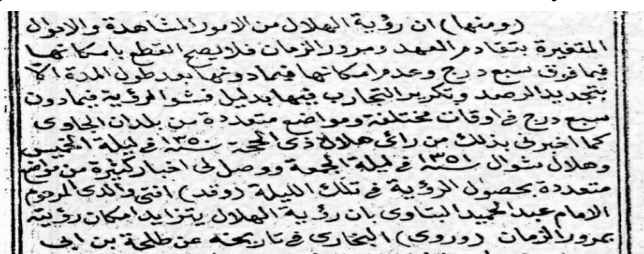 (ومنها) ان رؤية الهلال من الامور المشاهدة والاحوال
المتغيرة بتقادم العهد ومرور الزمان فلا يصح القطع بامكانها
فيما فوق سبع درج وعدم امكانها فيما دونها بعد طول المدة الا
بتجديد الرصد وتكرير التجارب فيها بدليل فشو الرؤية فيما دون
سبع درج فى اوقات مختلفة ومواضع متعددة من بلدان الجاوى
كما اخبرنى بذلك من رائ هلال ذى الحجة سنة ١٣٥٠ فى ليلة الخميس
وهلال شوال سنة ١٣٥١ فى ليلة الجمعة ووصل لى اخبار كثيرة من مواضع
متعددة بحصول الرؤية فى تلك الليلة (وقد) افتى والدى المرحوم
الامام عبد الحميد البتاوى بان رؤية الهلال يتزايد امكان رؤيته
بمرور الزمان (وروى) البخارى فى تاريخه عن طلحة بن ابى